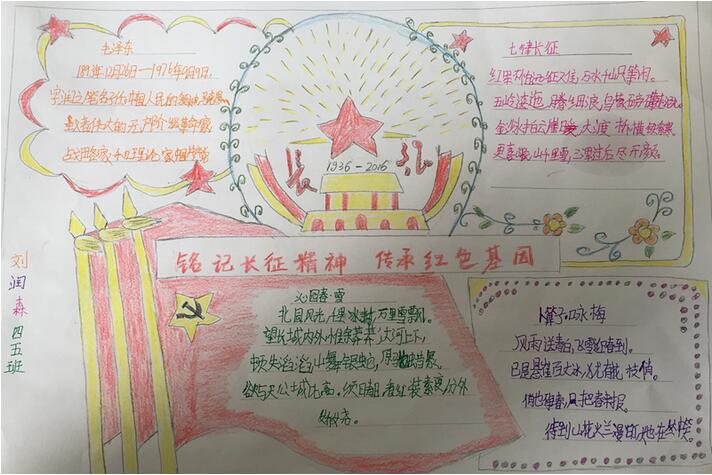 毛泽东
1893年12月26日—1976年9月9日,
字润之笔名子任,中国人民的领袖,
伟大的无产阶级革命家,
战略家,和理论家
七律长征
红军不怕远征又难,万水千山只等闲。
五岭逶迤腾细浪,乌蒙磅礴走泥丸。
金沙水拍云崖暖,大渡桥横铁索寒。
更喜岷山千里雪,三军过后尽开颜。
长征
1936-2016
铭记长征精神 传承红色基因
刘润森 四五班
沁园春·雪
北国风光,千里冰封,万里雪飘。
望长城内外,惟余莽莽;大河上下,
顿失滔滔,山舞银蛇,原驰蜡象,
欲与天公试比高。须日,看红装素裹,分外
妖娆。
卜算子·咏梅
风雨送春归,飞雪迎春到。
已是悬崖百丈冰,犹有花枝俏。
俏也不争春,只把春来报。
待到山花烂漫时,她在丛中笑。